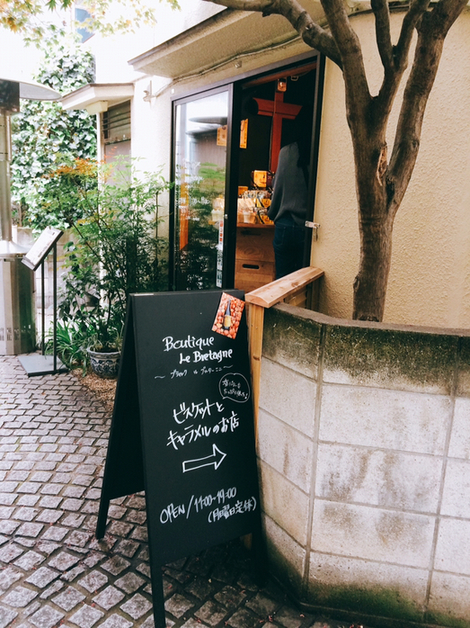 Boutique
Le Bretagne
ビスケットと
キャラメルのお店
OPEN/11:00-19:00
(月曜日定休)